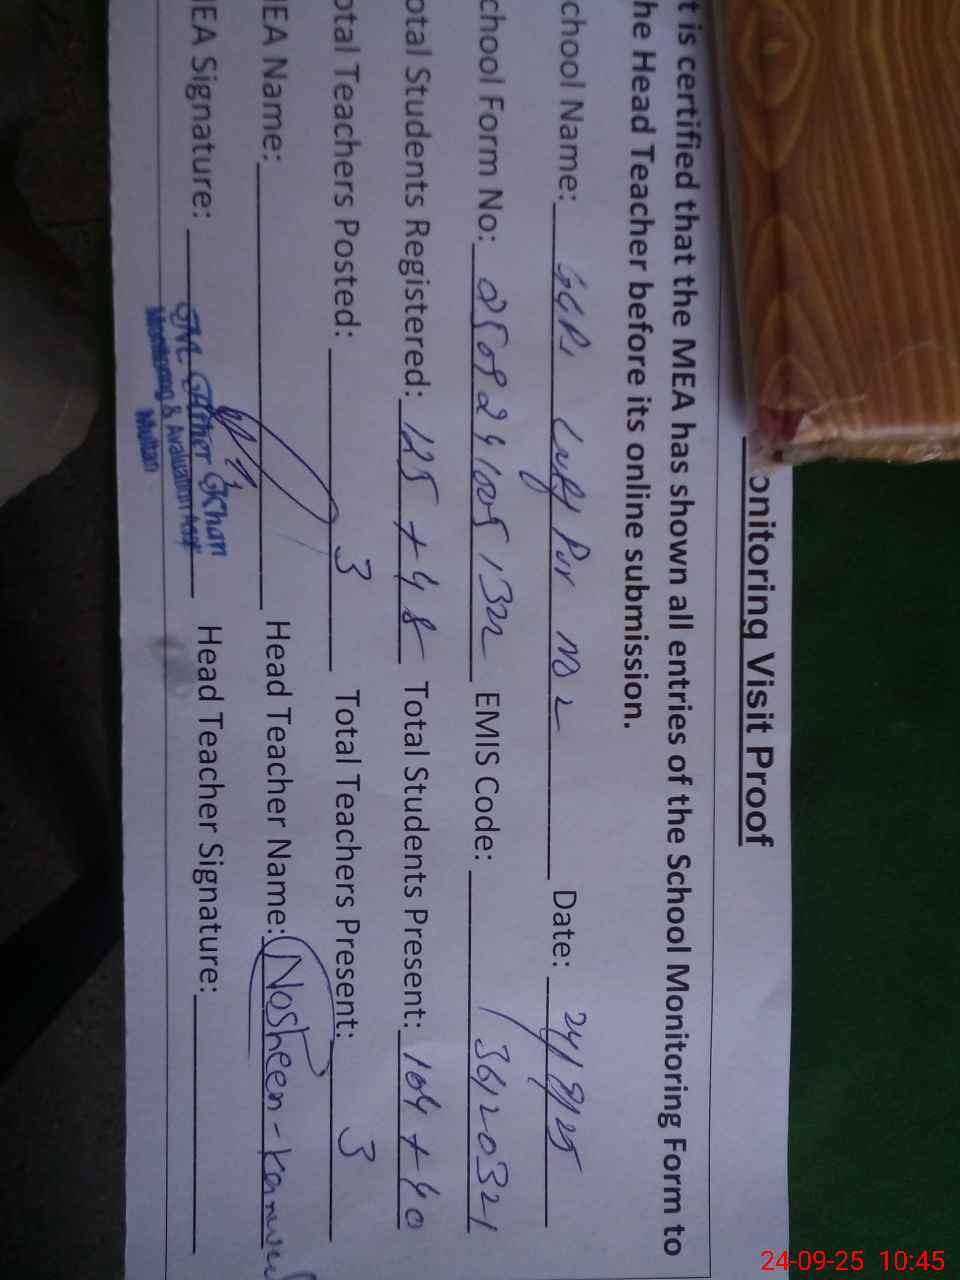 onitoring Visit Proof
t is certified that the MEA has shown all entries of the School Monitoring Form to
he Head Teacher before its online submission.
chool Name: Pur No 2 Date: 24/9/25
chool Form No: EMIS Code: 36120321
otal Students Registered: 125 + 48 Total Students Present: 104 + 40
otal Teachers Posted: 3 Total Teachers Present: 3
MEA Name: Head Teacher Name: Nosheen - Kanwal
MEA Signature: Khan Head Teacher Signature:
Monitoring & Avaluation Asst
Multan
24-09-25 10:45